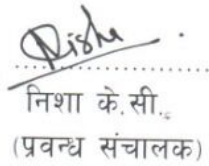 Nisha
निशा के.सी.
(प्रवन्ध संचालक)